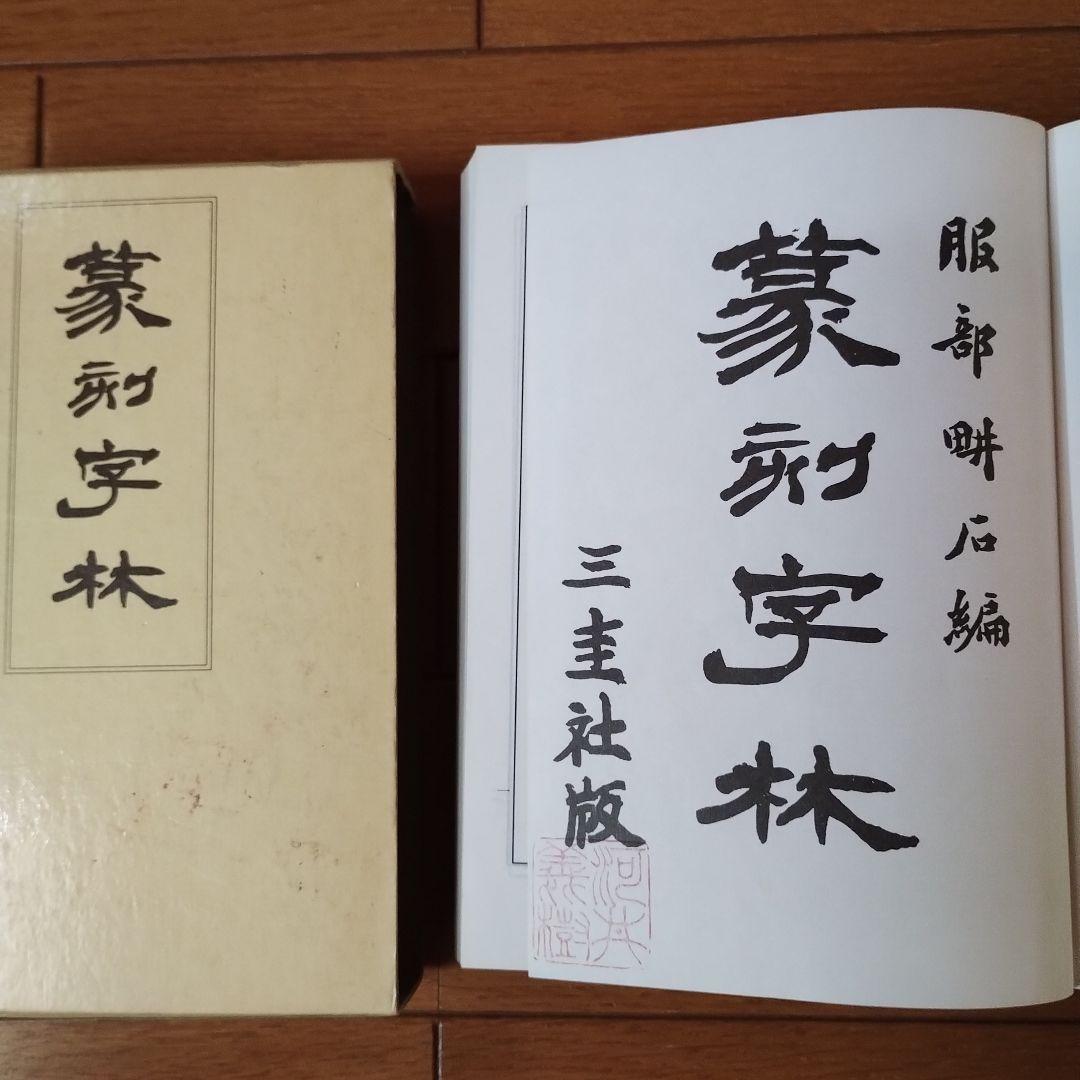 篆刻字林
服部畊石編
篆刻字林
三圭社版
河井
義樹